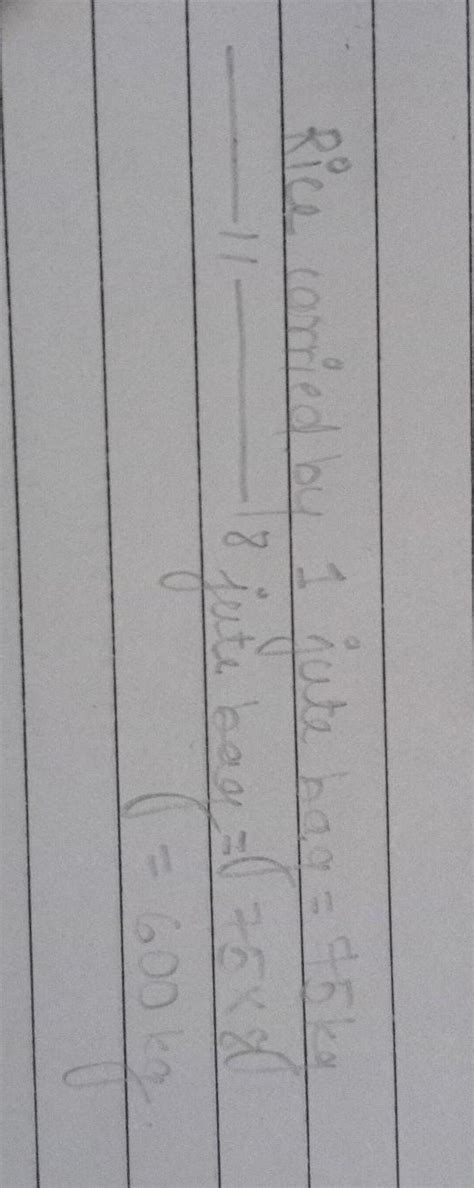 Rice carried by 1 jute bag = 75 kg
—— 11 —— 8 jute bag = 75 x 8
= 600 kg.